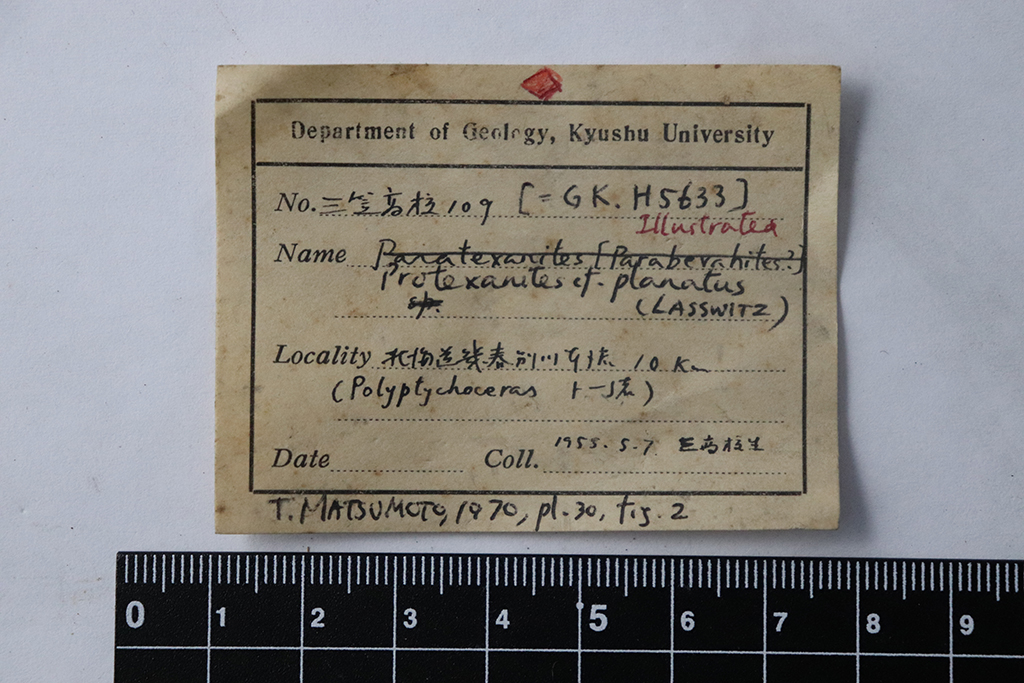 Department of Geology, Kyushu University
No. 三笠高校 109 [= GK. H5633]
Illustrated
Name Paratexanites [Parabevahites?]
Protexanites cf. planatus
sp. (LASSWITZ)
Locality 北海道幾春別川 10 Km
(Polyptychoceras
Date Coll. 1955. 5. 7 三高校生
T. MATSUMOTO, 1970, pl. 30, fig. 2
0 1 2 3 4 5 6 7 8 9